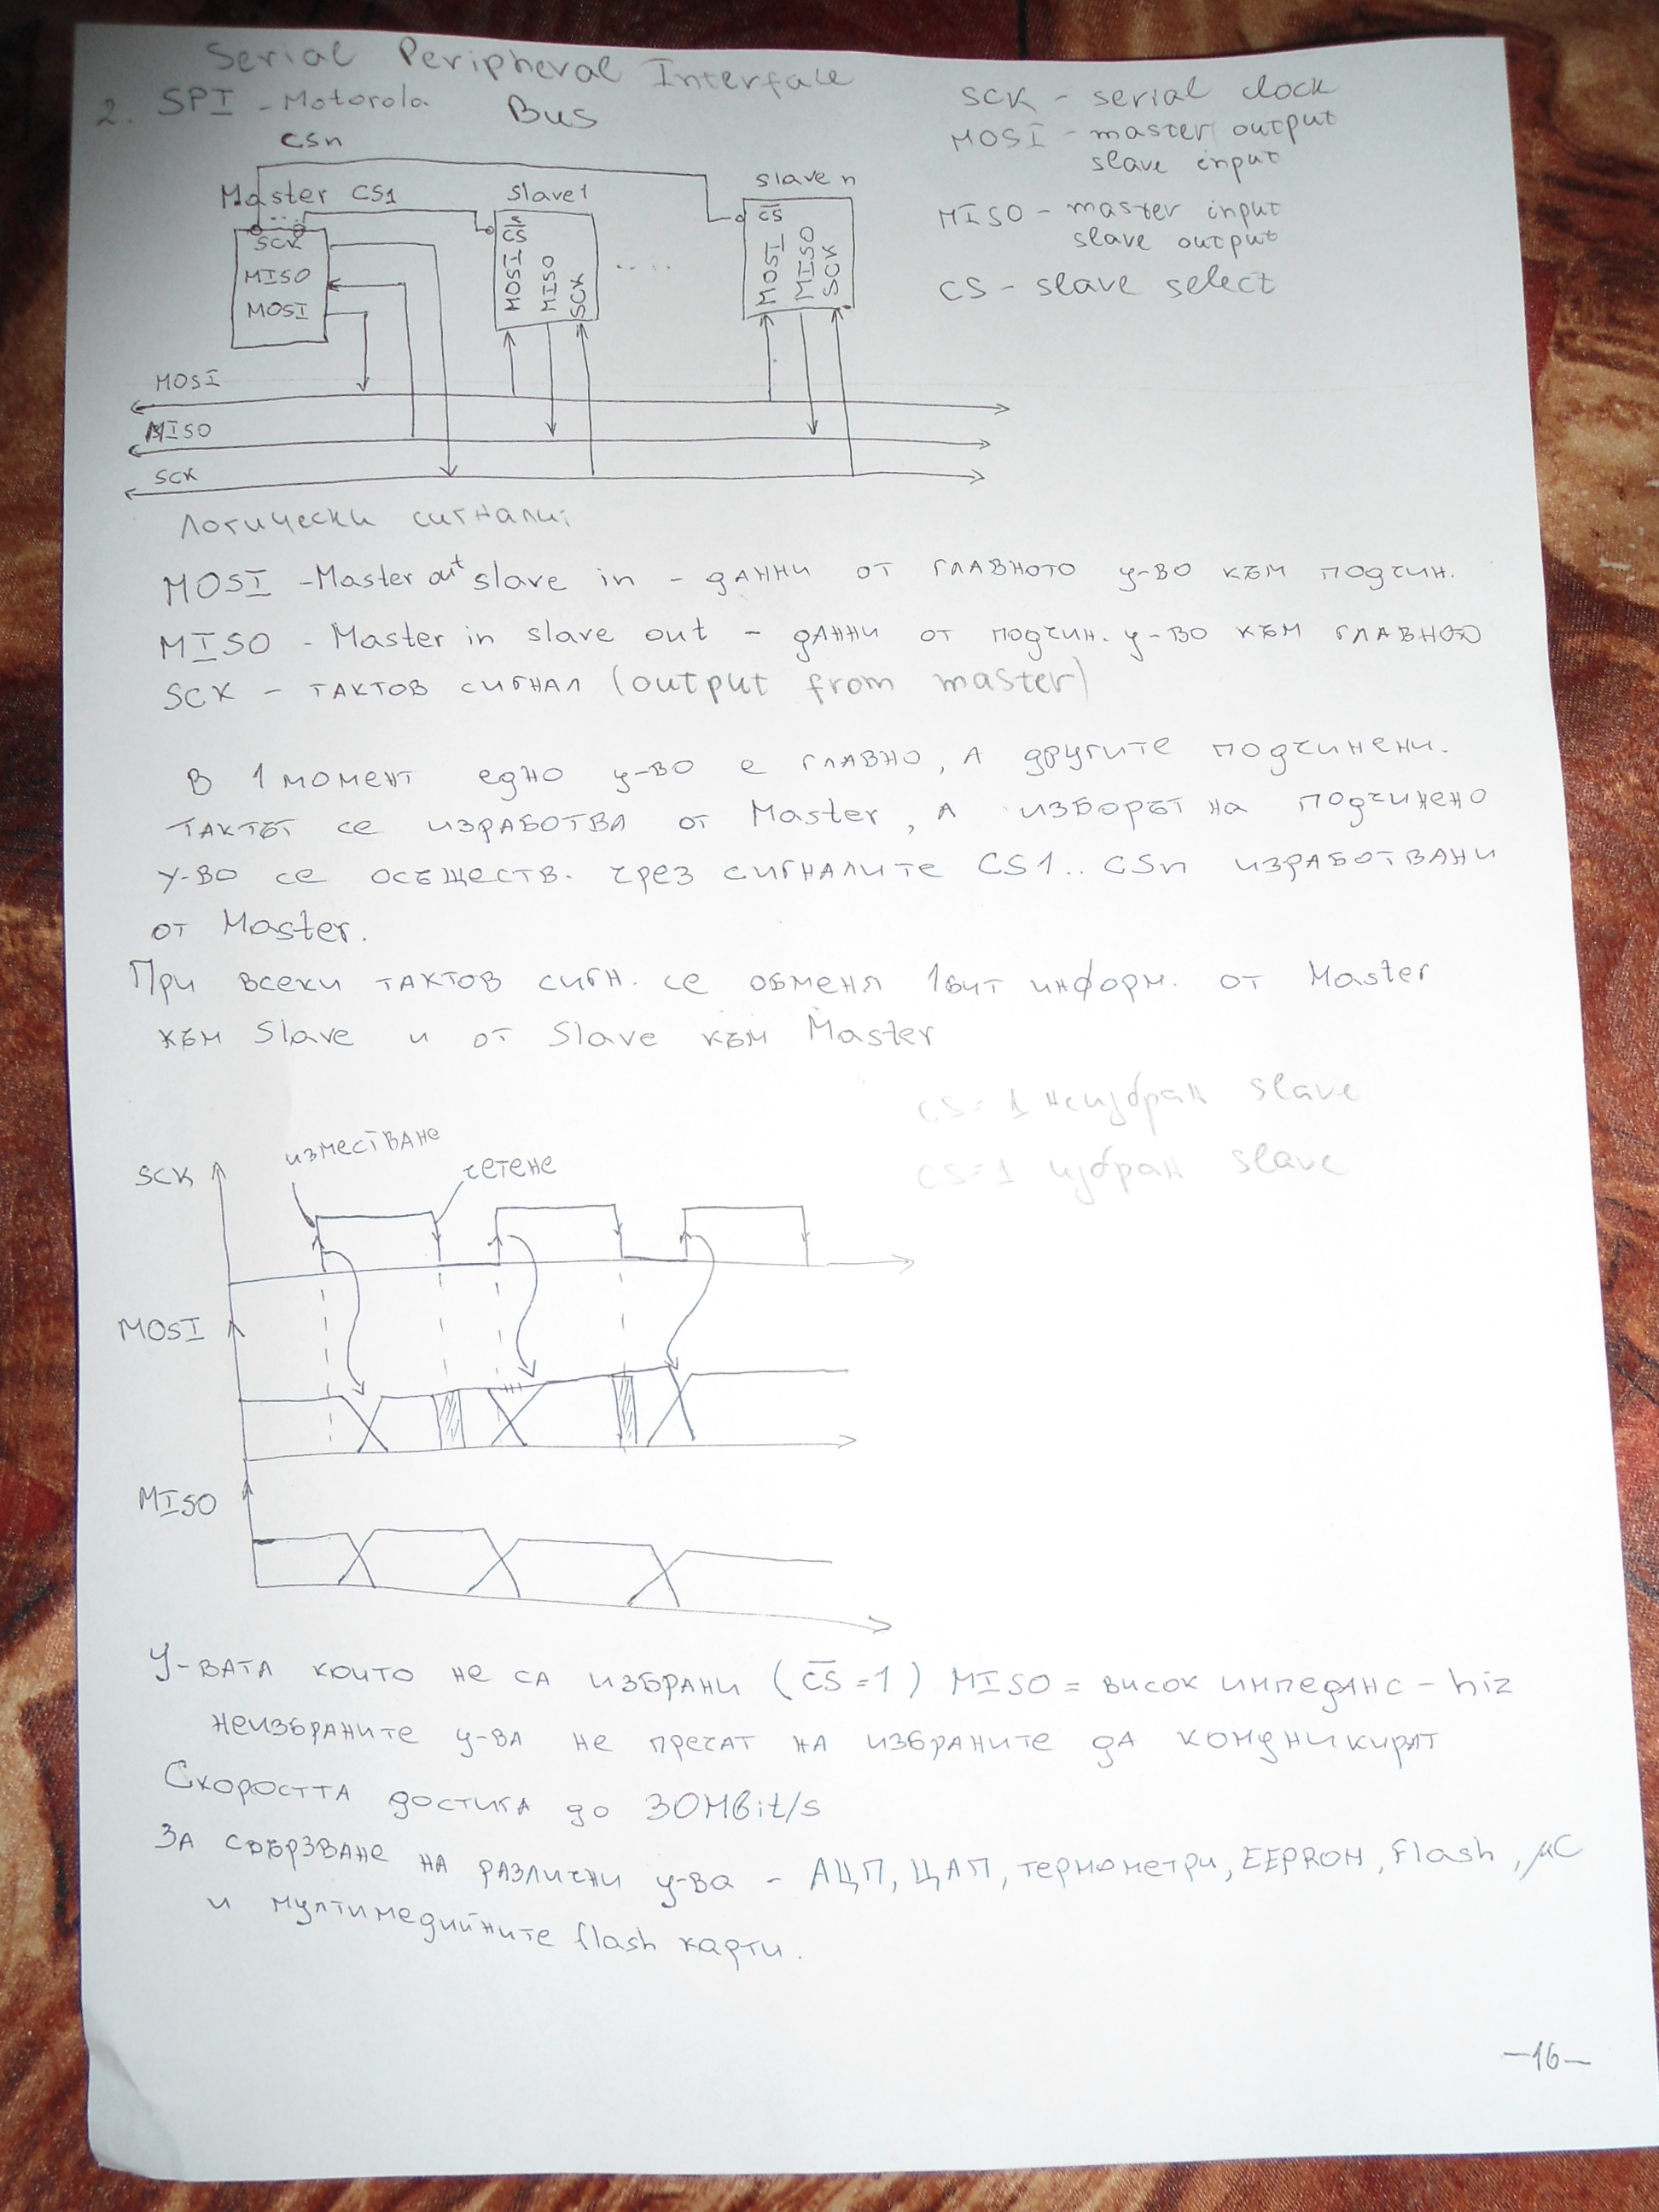 Serial Peripheral Interface
2. SPI - Motorola Bus
SCK - serial clock
MOSI - master output
slave input
MISO - master input
slave output
CS - slave select
CSn
Master CS1
Slave1
Slave n
SCK
MISO
MOSI
CS
MOSI
MISO
SCK
.....
CS
MOSI
MISO
SCK
MOSI
MISO
SCK
Логически сигнали:
MOSI - Master out slave in - данни от главното у-во към подчин.
MISO - Master in slave out - данни от подчин. у-во към главното
SCK - тактов сигнал (output from master)
В 1 момент едно у-во е главно, а другите подчинени.
Тактът се изработва от Master, а изборът на подчинено
у-во се осъществ. чрез сигналите CS1.. CSn изработвани
от Master.
При всеки тактов сигн. се обменя 1бит информ. от Master
към Slave и от Slave към Master
CS=1 неизбран slave
CS=1 избран slave
SCK
изместване
четене
MOSI
MISO
У-вата които не са избрани (C̅S̅=1) MISO = висок импеданс - hiz
неизбраните у-ва не пречат на избраните да комуникират
Скоростта достига до 30Mbit/s
За свързване на различни у-ва - АЦП, ЦАП, термометри, EEPROM, flash, μC
и мултимедийните flash карти.
-16-